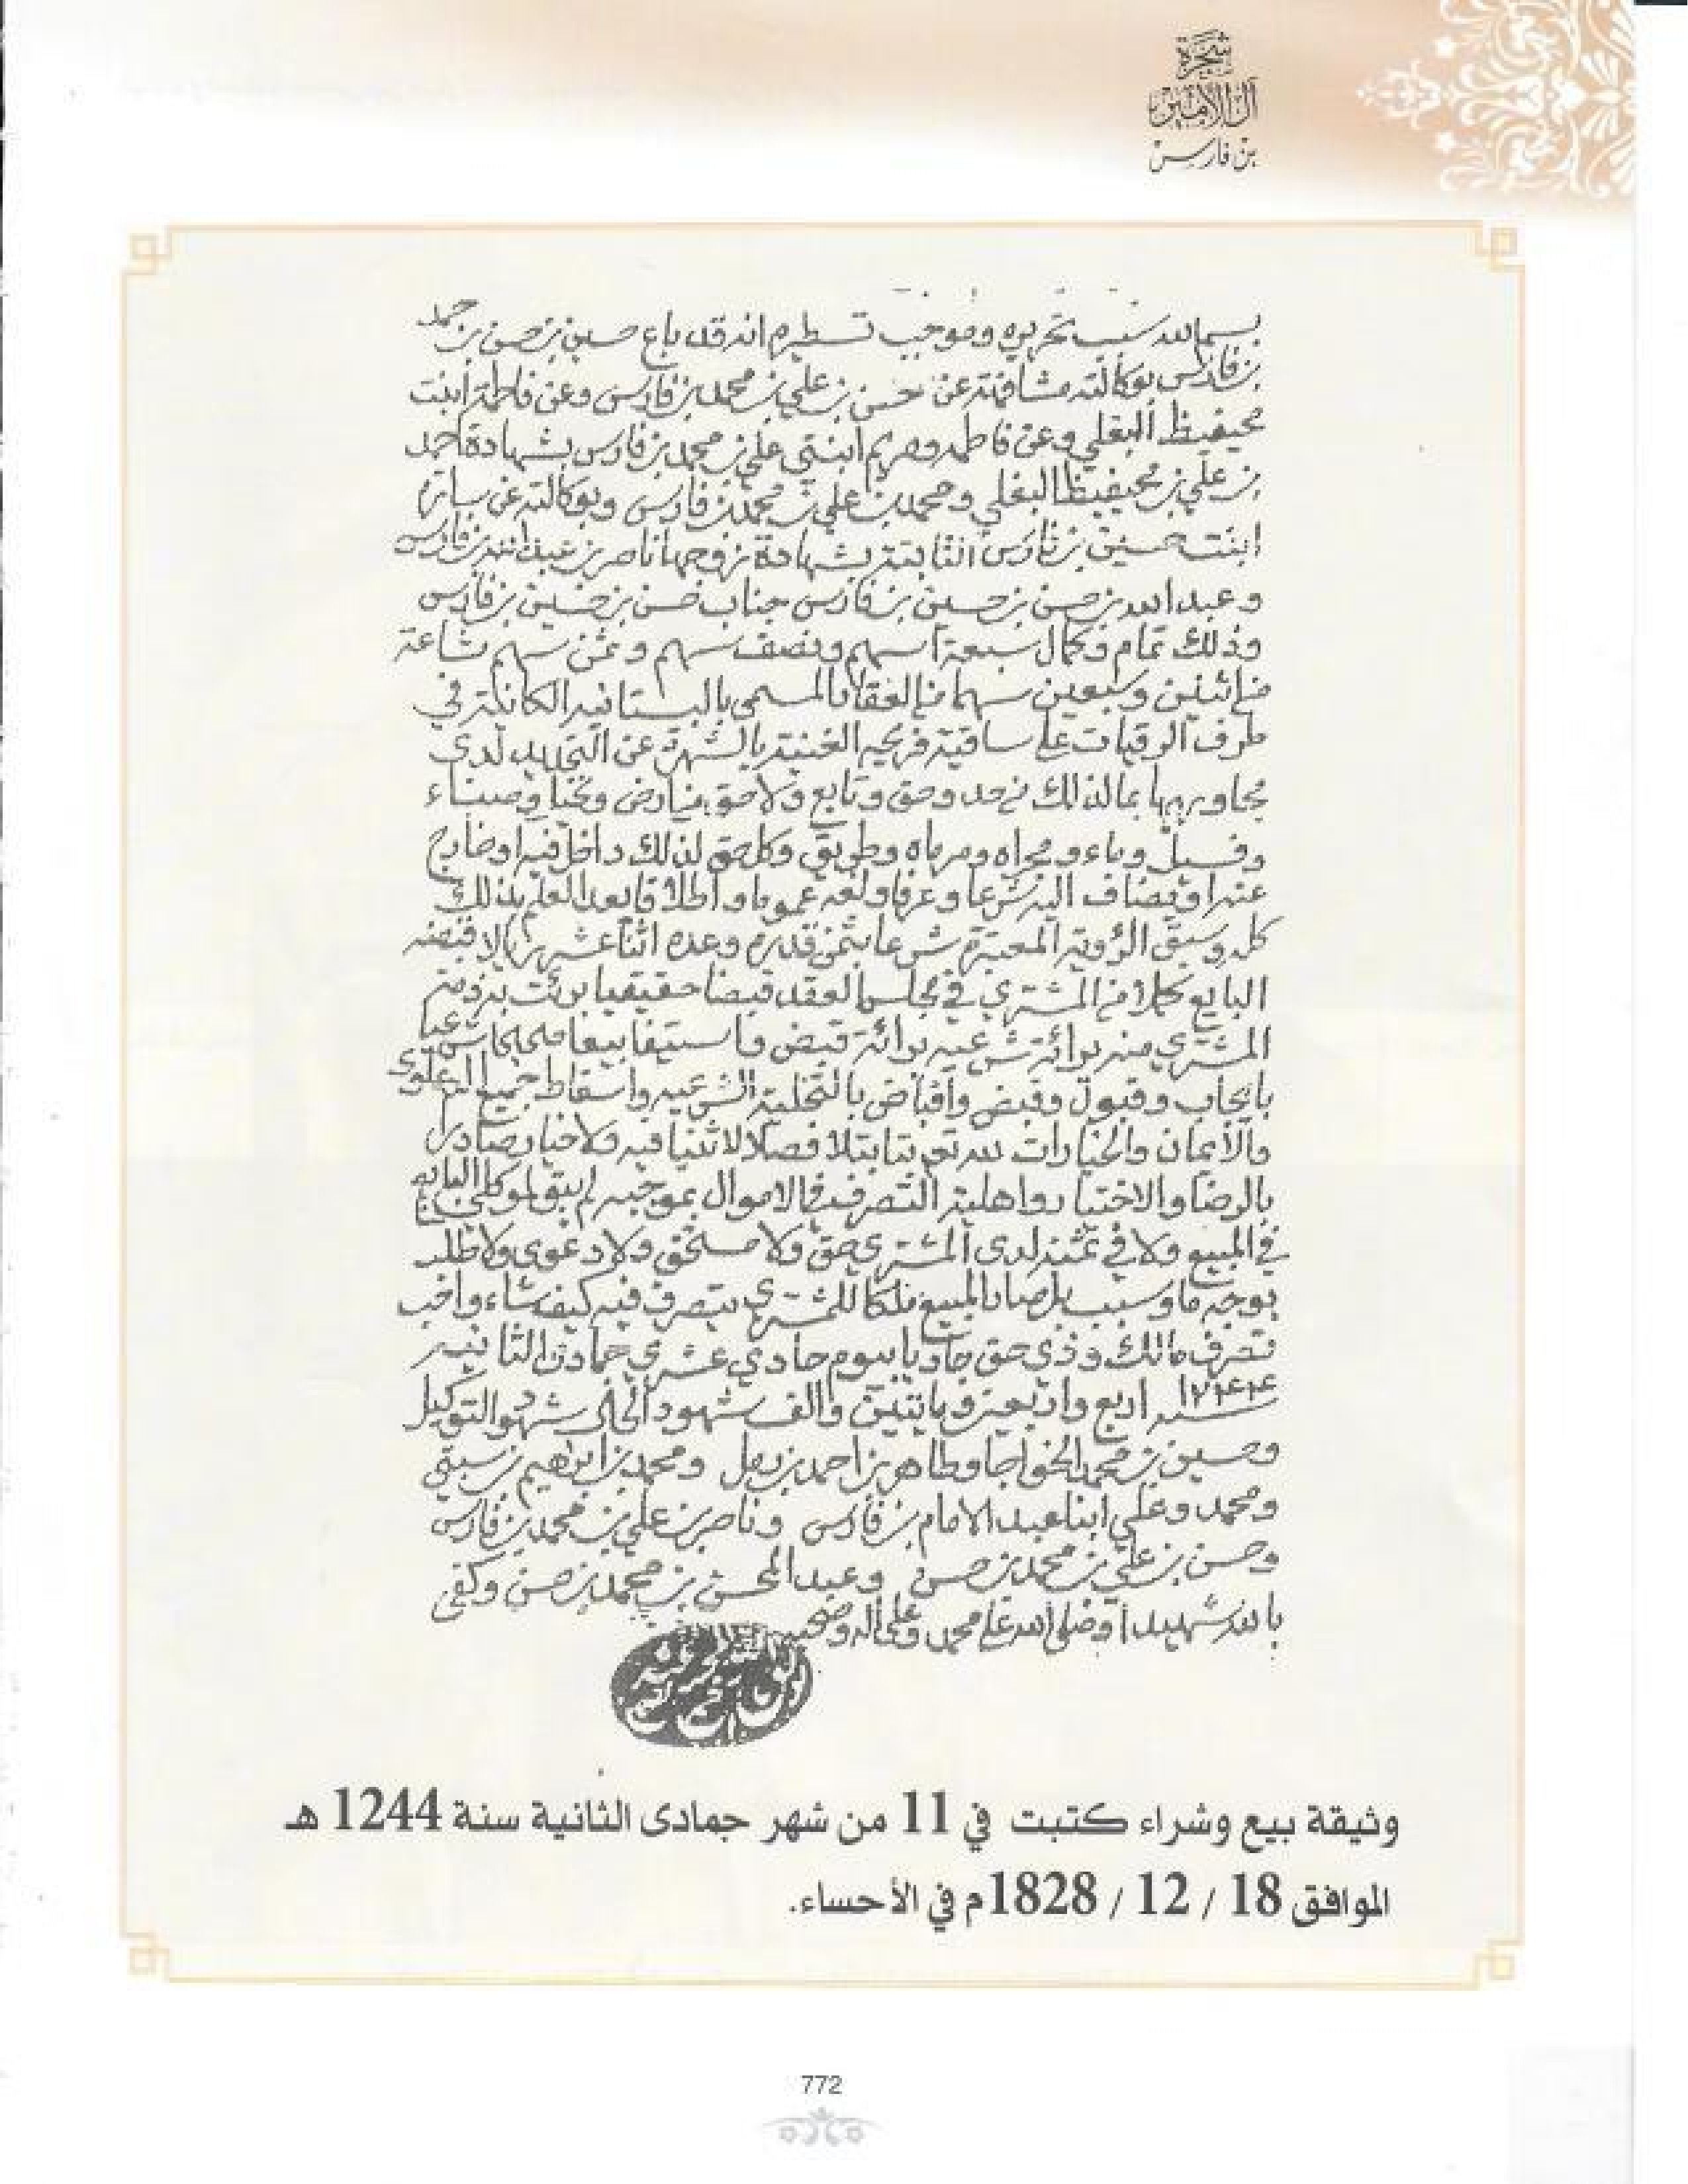 شجرة
آل الأمير
بن فارس
بسم الله سبب تحريره وموجب تسطيره انه قد باع حسين بن حسن بن حمد
بن فارس بوكالته مشافهة عن حسن بن علي بن محمد بن فارس وعن فاطمة ابنت
محيفيظ البغلي وعن فاطمه ومريم ابنتي علي بن محمد بن فارس بشهادة احمد
بن علي بن محيفيظ البغلي ومحمد بن علي بن محمد بن فارس وبوكالته عن
ابنت حسين بن فارس الثابتة بشهادة زوجها ناصر بن عبد الله بن فارس
وعبد الله بن حسن بن حسين بن فارس جناب حسن بن حسين بن فارس
وذلك تمام وكمال سبعة اسهم ونصف سهم وثمن سهم شاعة
من اثنين وسبعين سهما من العقار المسمى بالبستانيه الكائنة في
طرف الرقيات على ساقية فريحه الغنية بالشهرة عن التحديد لدى
مجاوريها بما لذلك من حد وحق وتابع ولاحق من ارض ونخل وصيناء
وفسيل وماء ومجراه ومرماه وطريق وكل حق لذلك داخل فيه او خارج
عنه او يضاف اليه شرعا وعرفا ولغه عموما واطلاقا بعد العلم بذلك
كله وسبق الرؤية المعتبرة شرعا بثمن قدره وعده اثنا عشر ريالا قبضه
البايع كملا من المشتري في مجلس العقد قبضا حقيقيا برئت به ذمة
المشتري منه برائة شرعيه برائة قبض واستيفا بيعا صحيحا شرعيا
بايجاب وقبول وقبض واقباض بالتخلية الشرعيه واسقاط جميع الدعاوي
والأيمان والخيارات لله تع بتا بتلا فصلا لا ثنيا فيه ولا خيار صادرا
بالرضا والاختيار واهلية التصرف في الاموال بموجبه لم يبق لموكلي البايع
في المبيع ولا في ثمنه لدى المشتري حق ولا مستحق ولا دعوى ولا طلب
بوجه ما وسبب بل صار المبيع ملكا للمشتري يتصرف فيه كيف شاء واحب
تصرف مالك وذي حق جاريا بيوم حادي عشري جمادى الثانيه
سنه ١٢٤٤ اربع واربعين وماتين والف شهود الحال شهود التوكيل
وحسين بن محمد الخواجا وطاهر بن احمد بن بعل ومحمد بن ابراهيم بن سبتي
ومحمد وعلي ابنا عبد الامام بن فارس وناصر بن علي بن محمد بن فارس
وحسن بن علي بن محمد بن حسن وعبد المحسن بن محمد بن حسن وكفى
بالله شهيدا وصلى الله على محمد وعلى اله وصحبه
وثيقة بيع وشراء كتبت في 11 من شهر جمادى الثانية سنة 1244 هـ
الموافق 18 / 12 / 1828م في الأحساء.
772